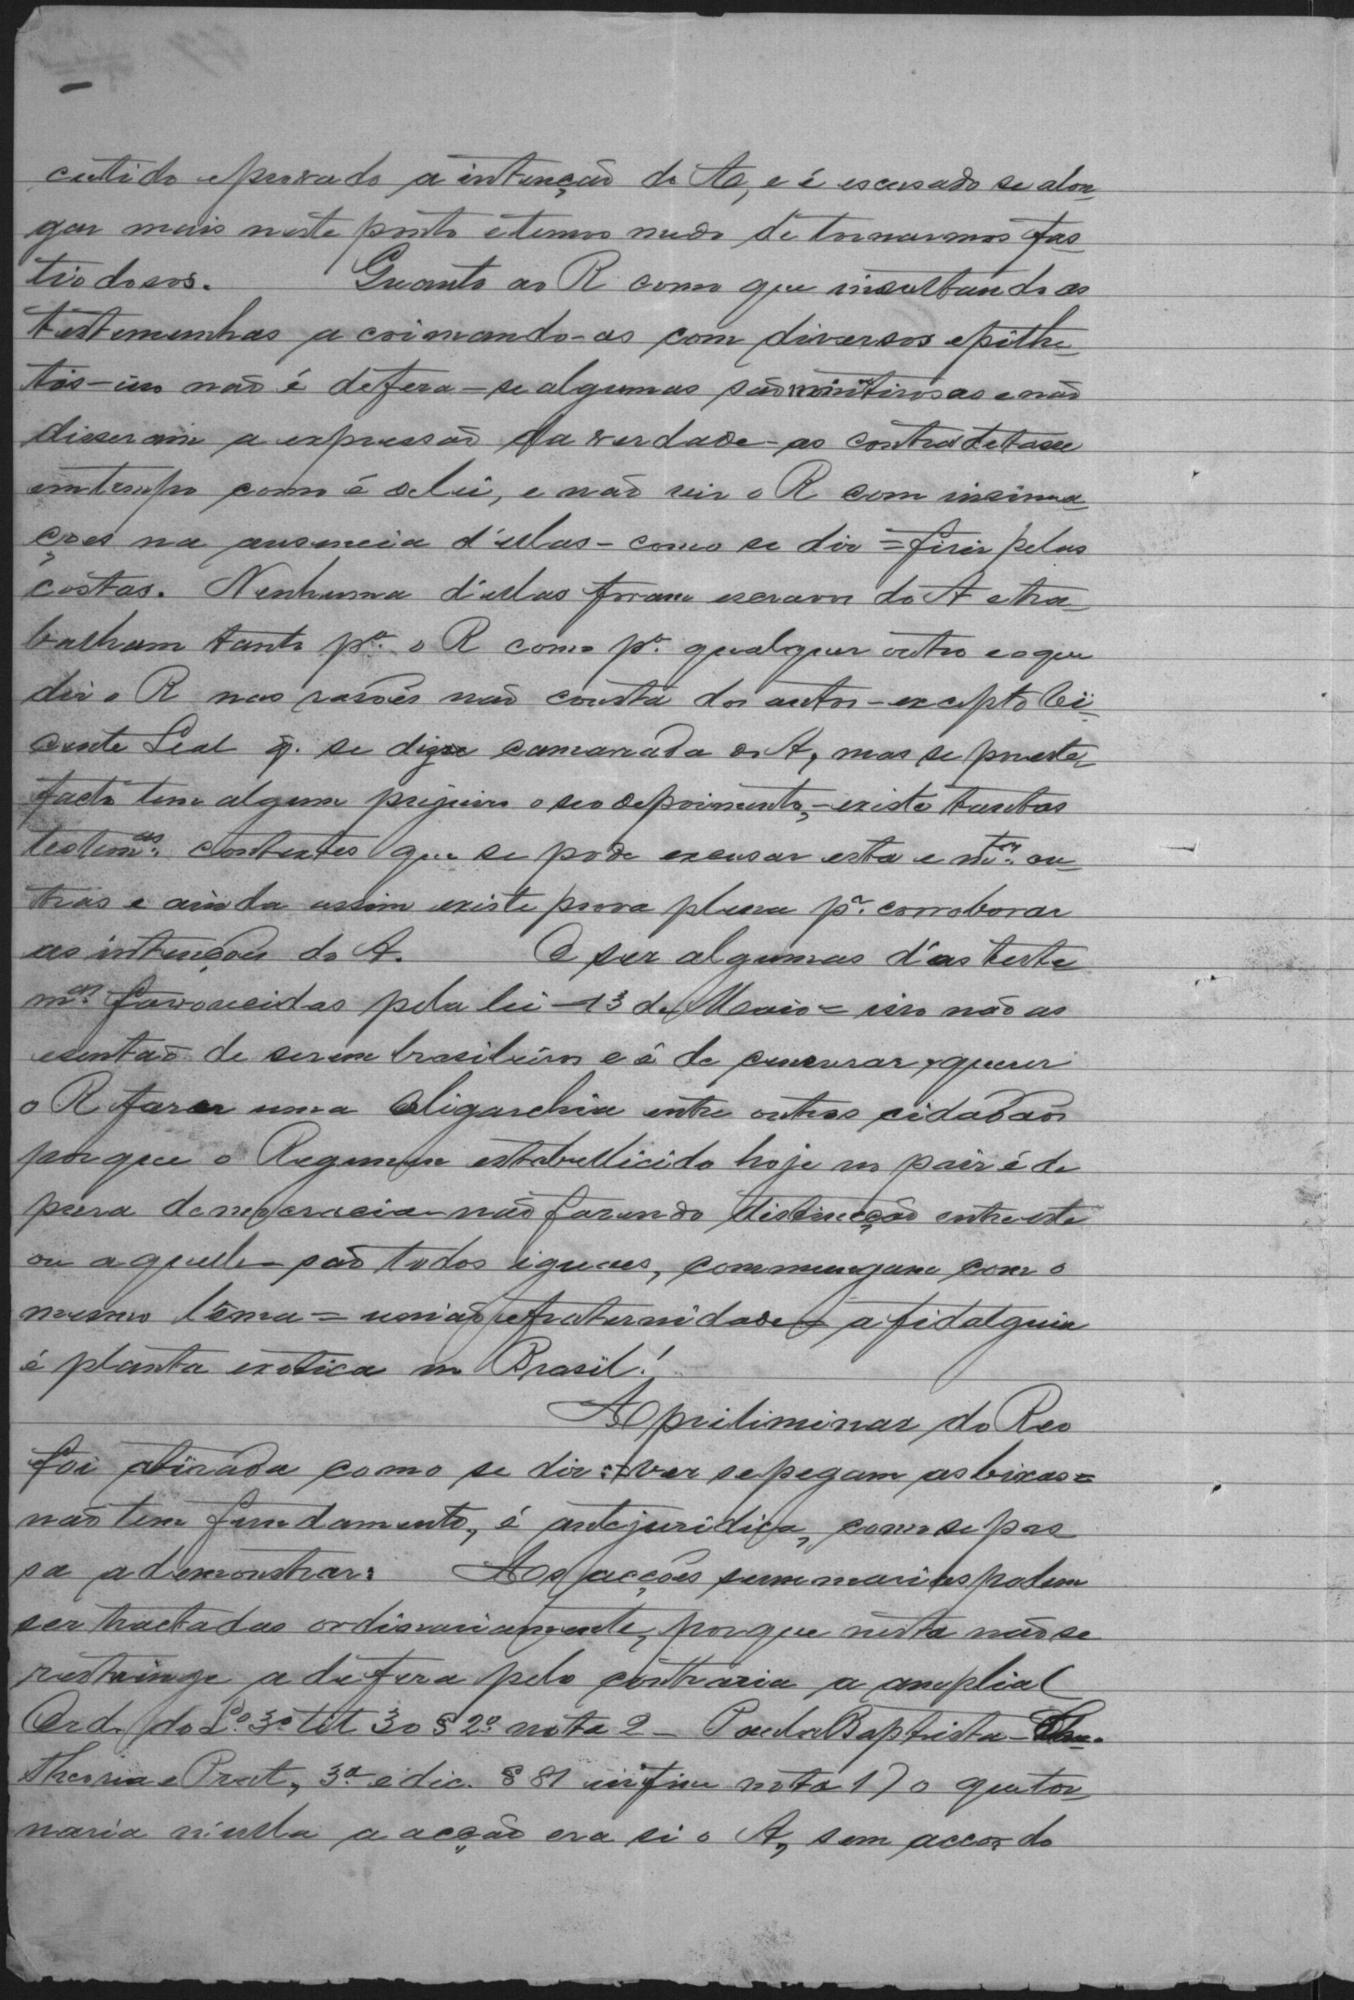 cutido e provado a intenção do A, e é escusado se alon-
gar mais neste ponto e temos medo de tornarmos fas-
tiodosos. Quanto ao R como que insultando as
testemunhas a coimando-as com diversos epithe-
tos - isso não é defeza - se algumas são mintirosas e não
disseram a expressão da verdade - as contradetasse
em tempo como é de lei, e não vir o R com insinua-
ções na ausencia d'ellas - como se diz = firir pelas
costas. Nenhuma d'ellas foram escravos do A e tra-
balham tanto pª. o R como pª. qualquer outro e o que
diz o R nas rasões não consta dos autos - excepto Vi-
cente Leal q. se dizer camarada do A, mas se por este
facto tem algum prejuizo o seo depoimento, - existe tantas
testemªs. contextes que se pode excusar esta e mtªs. ou-
tras e ainda assim existe prova plena pª. corroborar
as intenções do A. O ser algumas d'as teste
mªs. favorecidas pela lei - 13 de Maio = isso não as
esentão de serem brasileiros e é de censurar querer
o R fazer uma oligarchia entre outros cidadãos
porque o Regimem estabellicido hoje no paiz é de
pura democracia - não fazendo distincção entre este
ou aquelle - são todos iguaes, commungam com o
mesmo lema = união e fraternidade - a fidalguia
é planta exotica no Brasil!
A priliminar do Reo
foi atirada como se diz = ver se pegam as bixas =
não tem fundamento, é antejuridica, como se pas
sa a demonstrar: As acções summarias podem
ser tractadas ordinariamente, porque nesta não se
restringe a defeza pelo contrario a amplia (
Ord. do Lº. 3º tit 30 § 2º. nota 2 - Paula Baptista -
Theoria e Prat, 3ª edic. § 81 infine nota 1) o que tor-
naria nulla a acção era si o A, sem accordo